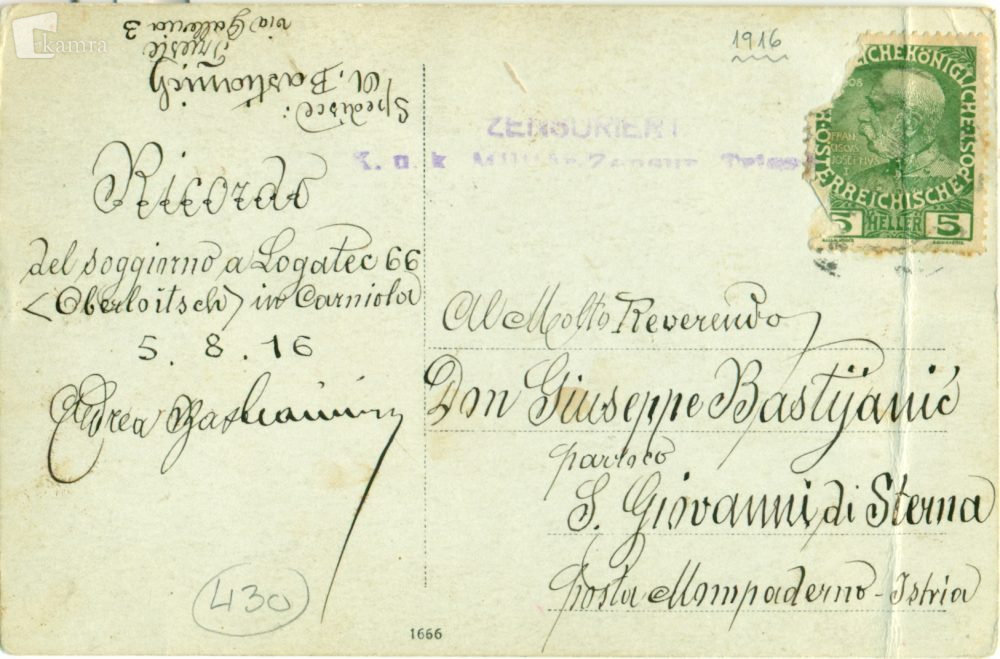 kamra
Spedisce:
A. Bastianich
Trieste
via Galleria 3
1916
ZENSURIERT
K. u. k. Militär-Zensur
FRAN
CISCVS
IOSEPHVS
ÖSTERREICHISCHE POST
5 HELLER 5
Ricordo
del soggiorno a Logatec 66
(Oberloitsch) in Carniola
5. 8. 16
Andrea
Al Molto Reverendo
Don Giuseppe Bastijanić
parroco
S. Giovanni di Sterna
posta Mompaderno - Istria
430
1666